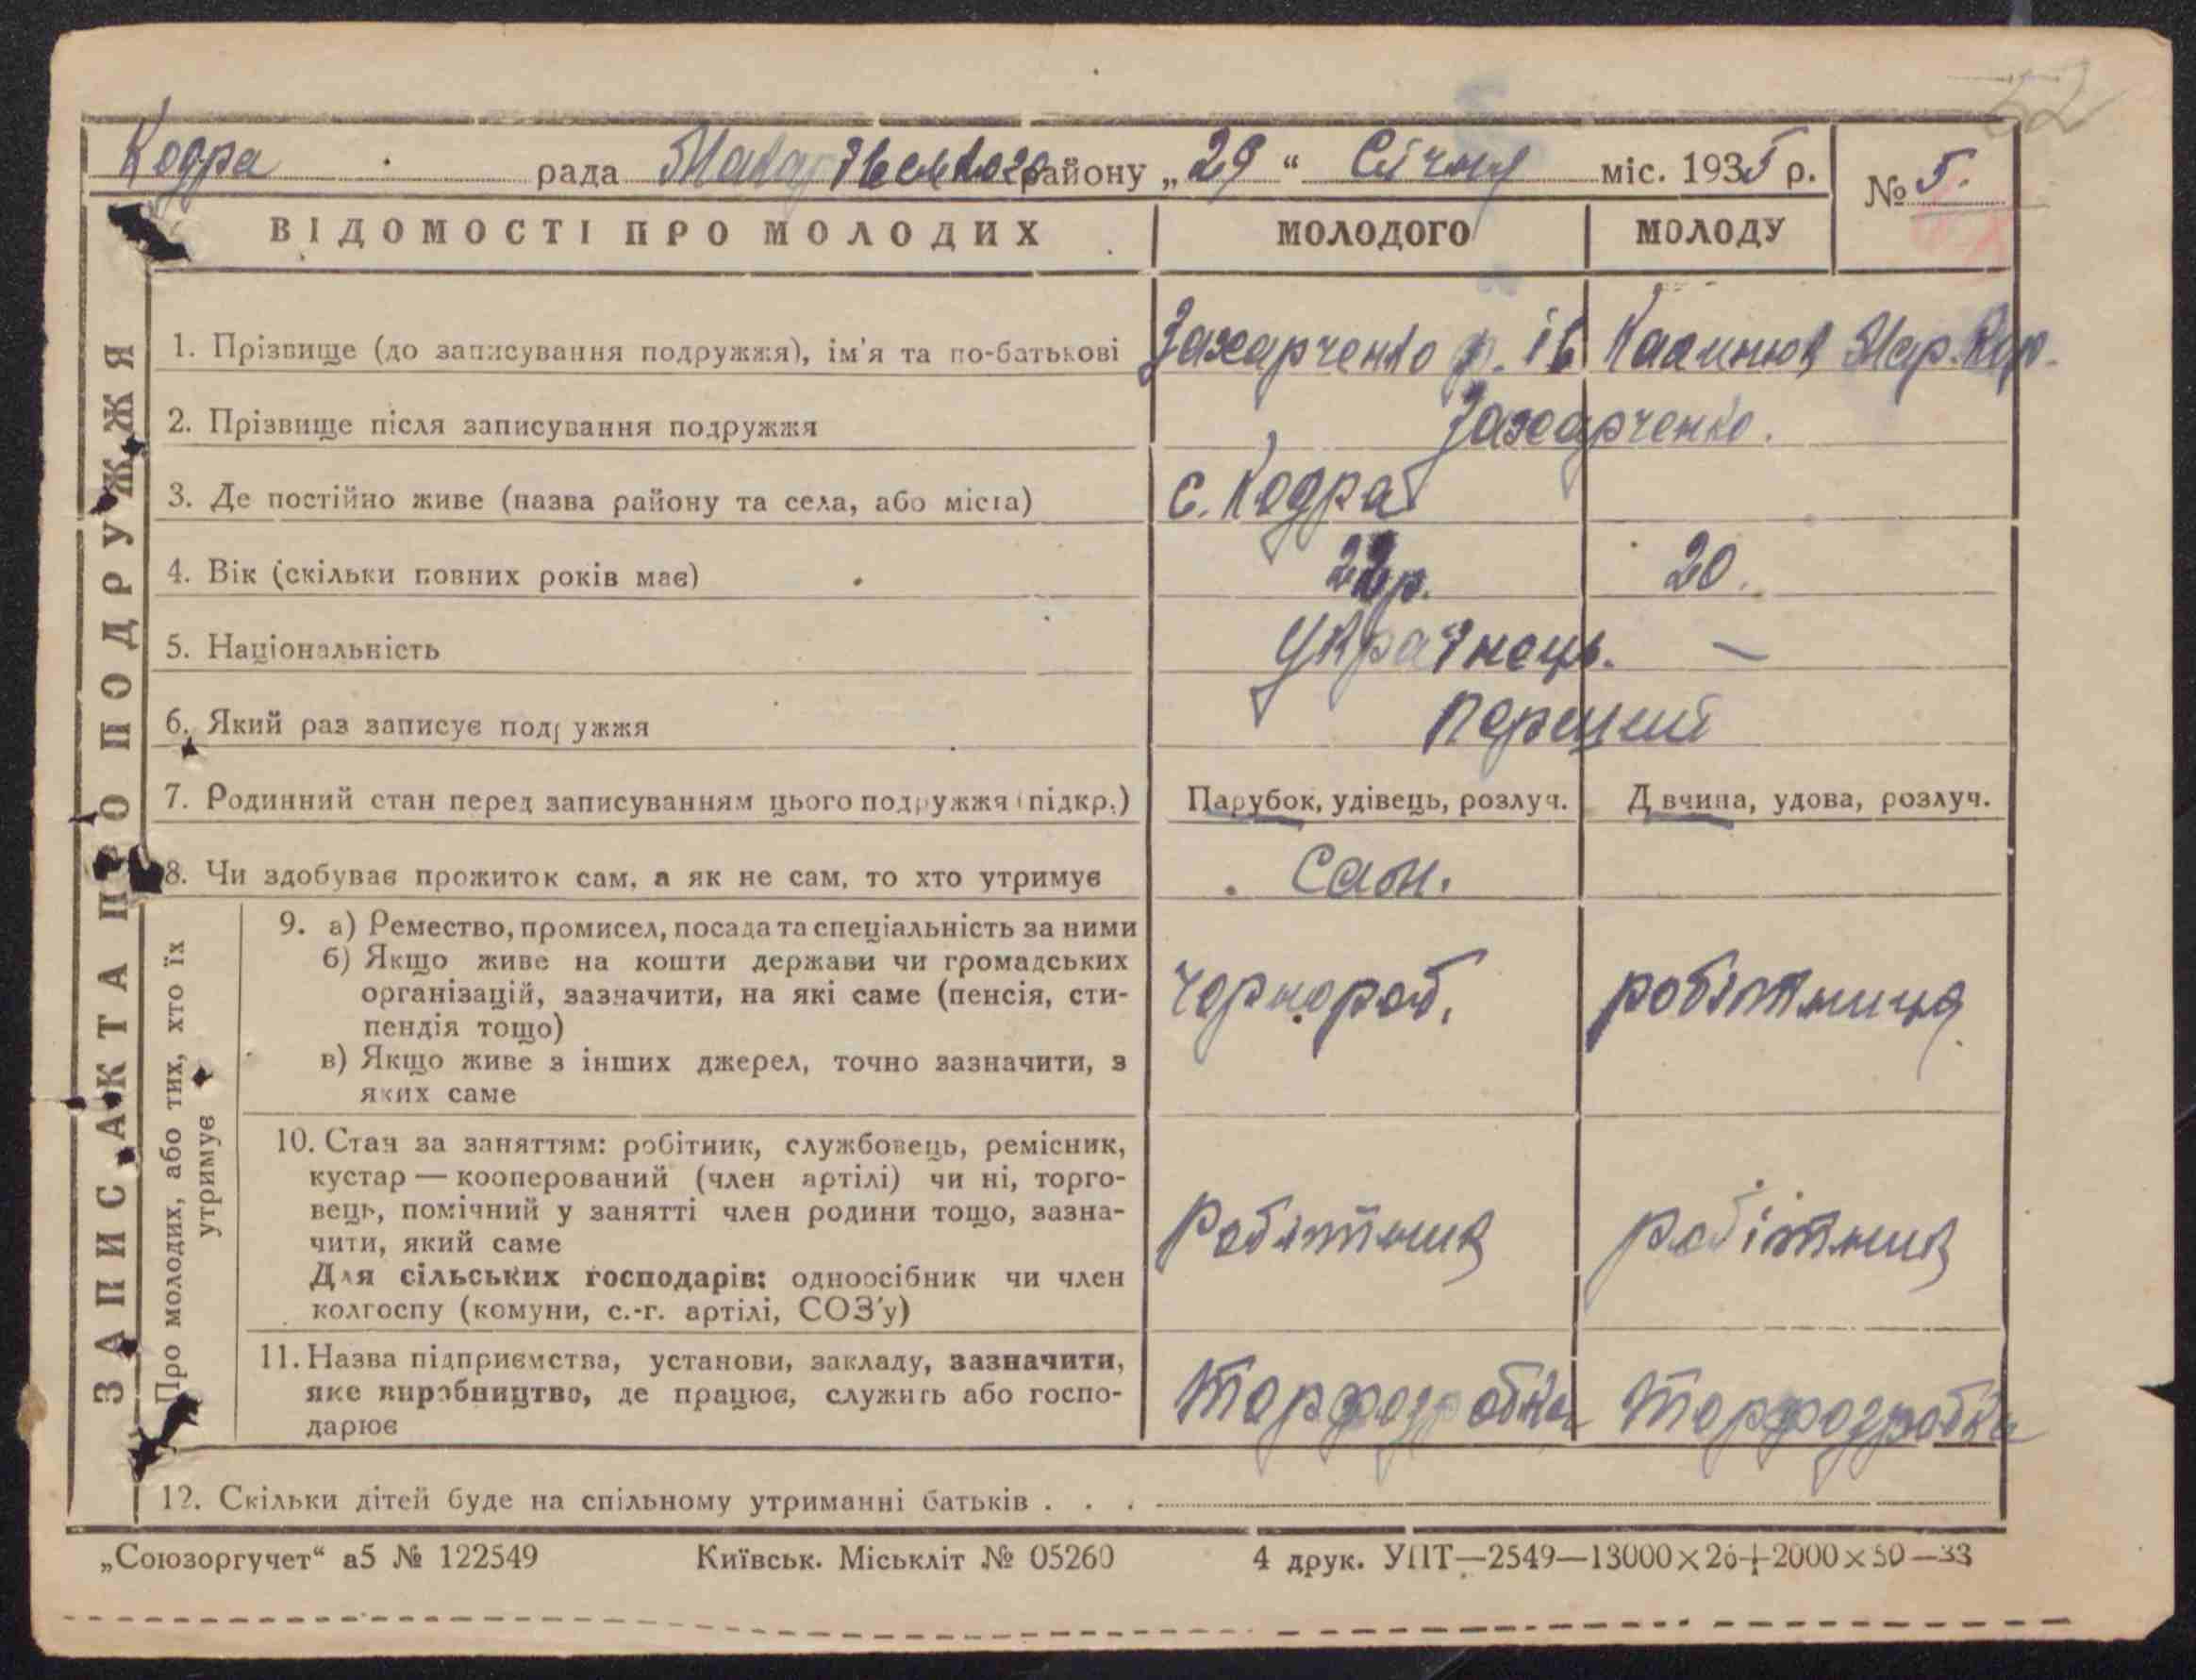 52
Кодра рада Макарівського району „29“ Січня міс. 1935 р. № 5.
ВІДОМОСТІ ПРО МОЛОДИХ МОЛОДОГО МОЛОДУ
ЗАПИС АКТА ПРО ПОДРУЖЖЯ
1. Прізвище (до записування подружжя), ім'я та по-батькові Захарченко Ф. Ів Калинюк Мар.
2. Прізвище після записування подружжя Захарченко.
3. Де постійно живе (назва району та села, або міста) с. Кодра
4. Вік (скільки повних років має) 22р. 20.
5. Національність Українець. –
6. Який раз записує подружжя перший
7. Родинний стан перед записуванням цього подружжя (підкр.) Парубок, удівець, розлуч. Дівчина, удова, розлуч.
8. Чи здобуває прожиток сам, а як не сам, то хто утримує Сам.
Про молодих, або тих, хто їх
утримує
9. а) Ремество, промисел, посада та спеціальність за ними
б) Якщо живе на кошти держави чи громадських
організацій, зазначити, на які саме (пенсія, сти-
пендія тощо) чорнороб. робітниця
в) Якщо живе з інших джерел, точно зазначити, з
яких саме
10. Стан за заняттям: робітник, службовець, ремісник,
кустар — кооперований (член артілі) чи ні, торго-
вець, помічний у занятті член родини тощо, зазна-
чити, який саме робітник робітник
Для сільських господарів: одноосібник чи член
колгоспу (комуни, с.-г. артілі, СОЗ'у)
11. Назва підприємства, установи, закладу, зазначити,
яке виробництво, де працює, служить або госпо-
дарює Торфрозробка Торфрозробка
12. Скільки дітей буде на спільному утриманні батьків . . .
„Союзоргучет“ а5 № 122549 Київськ. Міськліт № 05260 4 друк. УПТ—2549—13000×26+2000×50—33